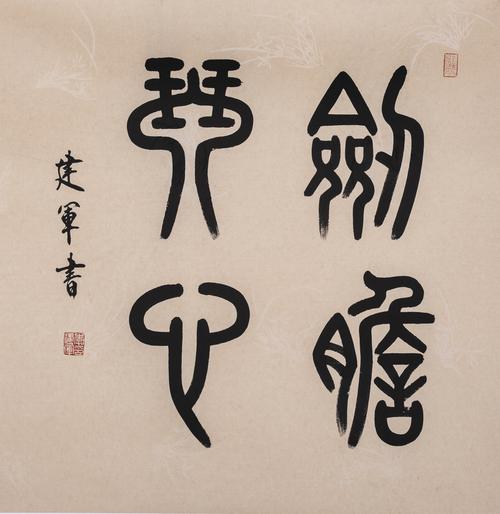 劍膽
琴心
建軍書